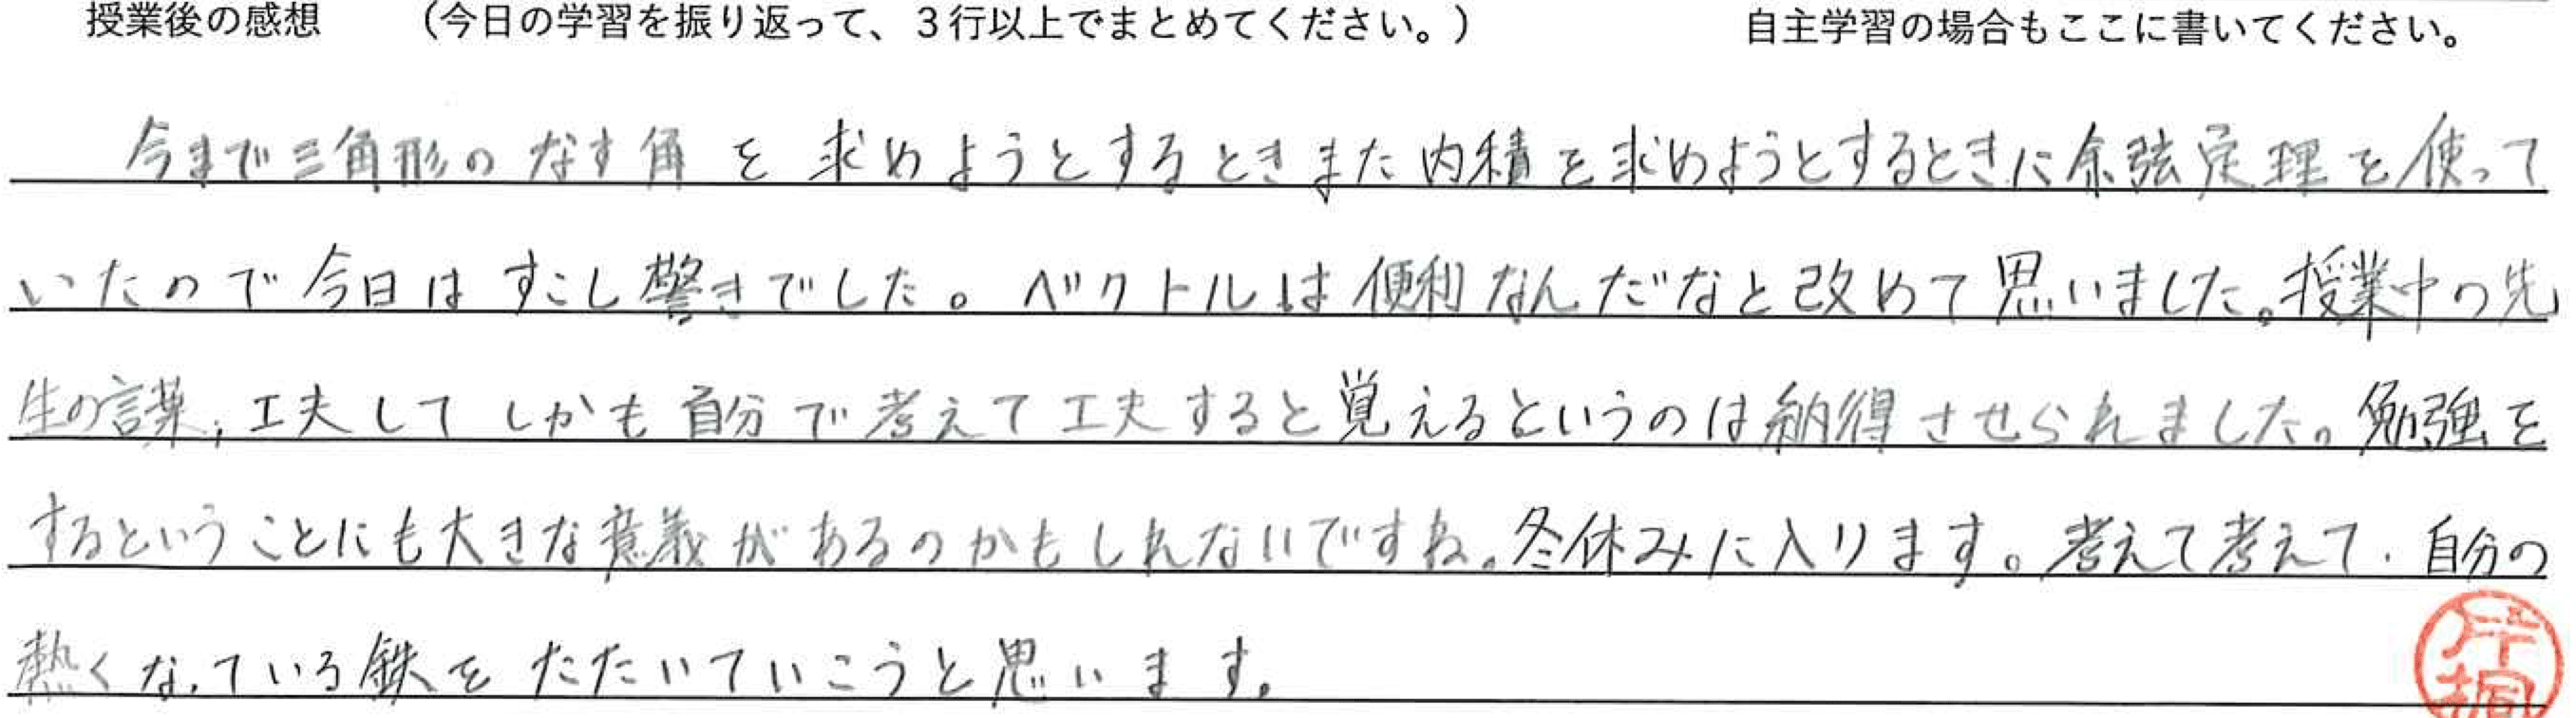 授業後の感想　（今日の学習を振り返って、３行以上でまとめてください。）　自主学習の場合もここに書いてください。
今まで三角形のなす角を求めようとするときまた内積を求めようとするときに余弦定理を使って
いたので今日はすこし驚きでした。ベクトルは便利なんだなと改めて思いました。授業中の先
生の言葉，工夫してしかも自分で考えて工夫すると覚えるというのは納得させられました。勉強を
するということにも大きな意義があるのかもしれないですね。冬休みに入ります。考えて考えて、自分の
熱くなっている鉄をたたいていこうと思います。